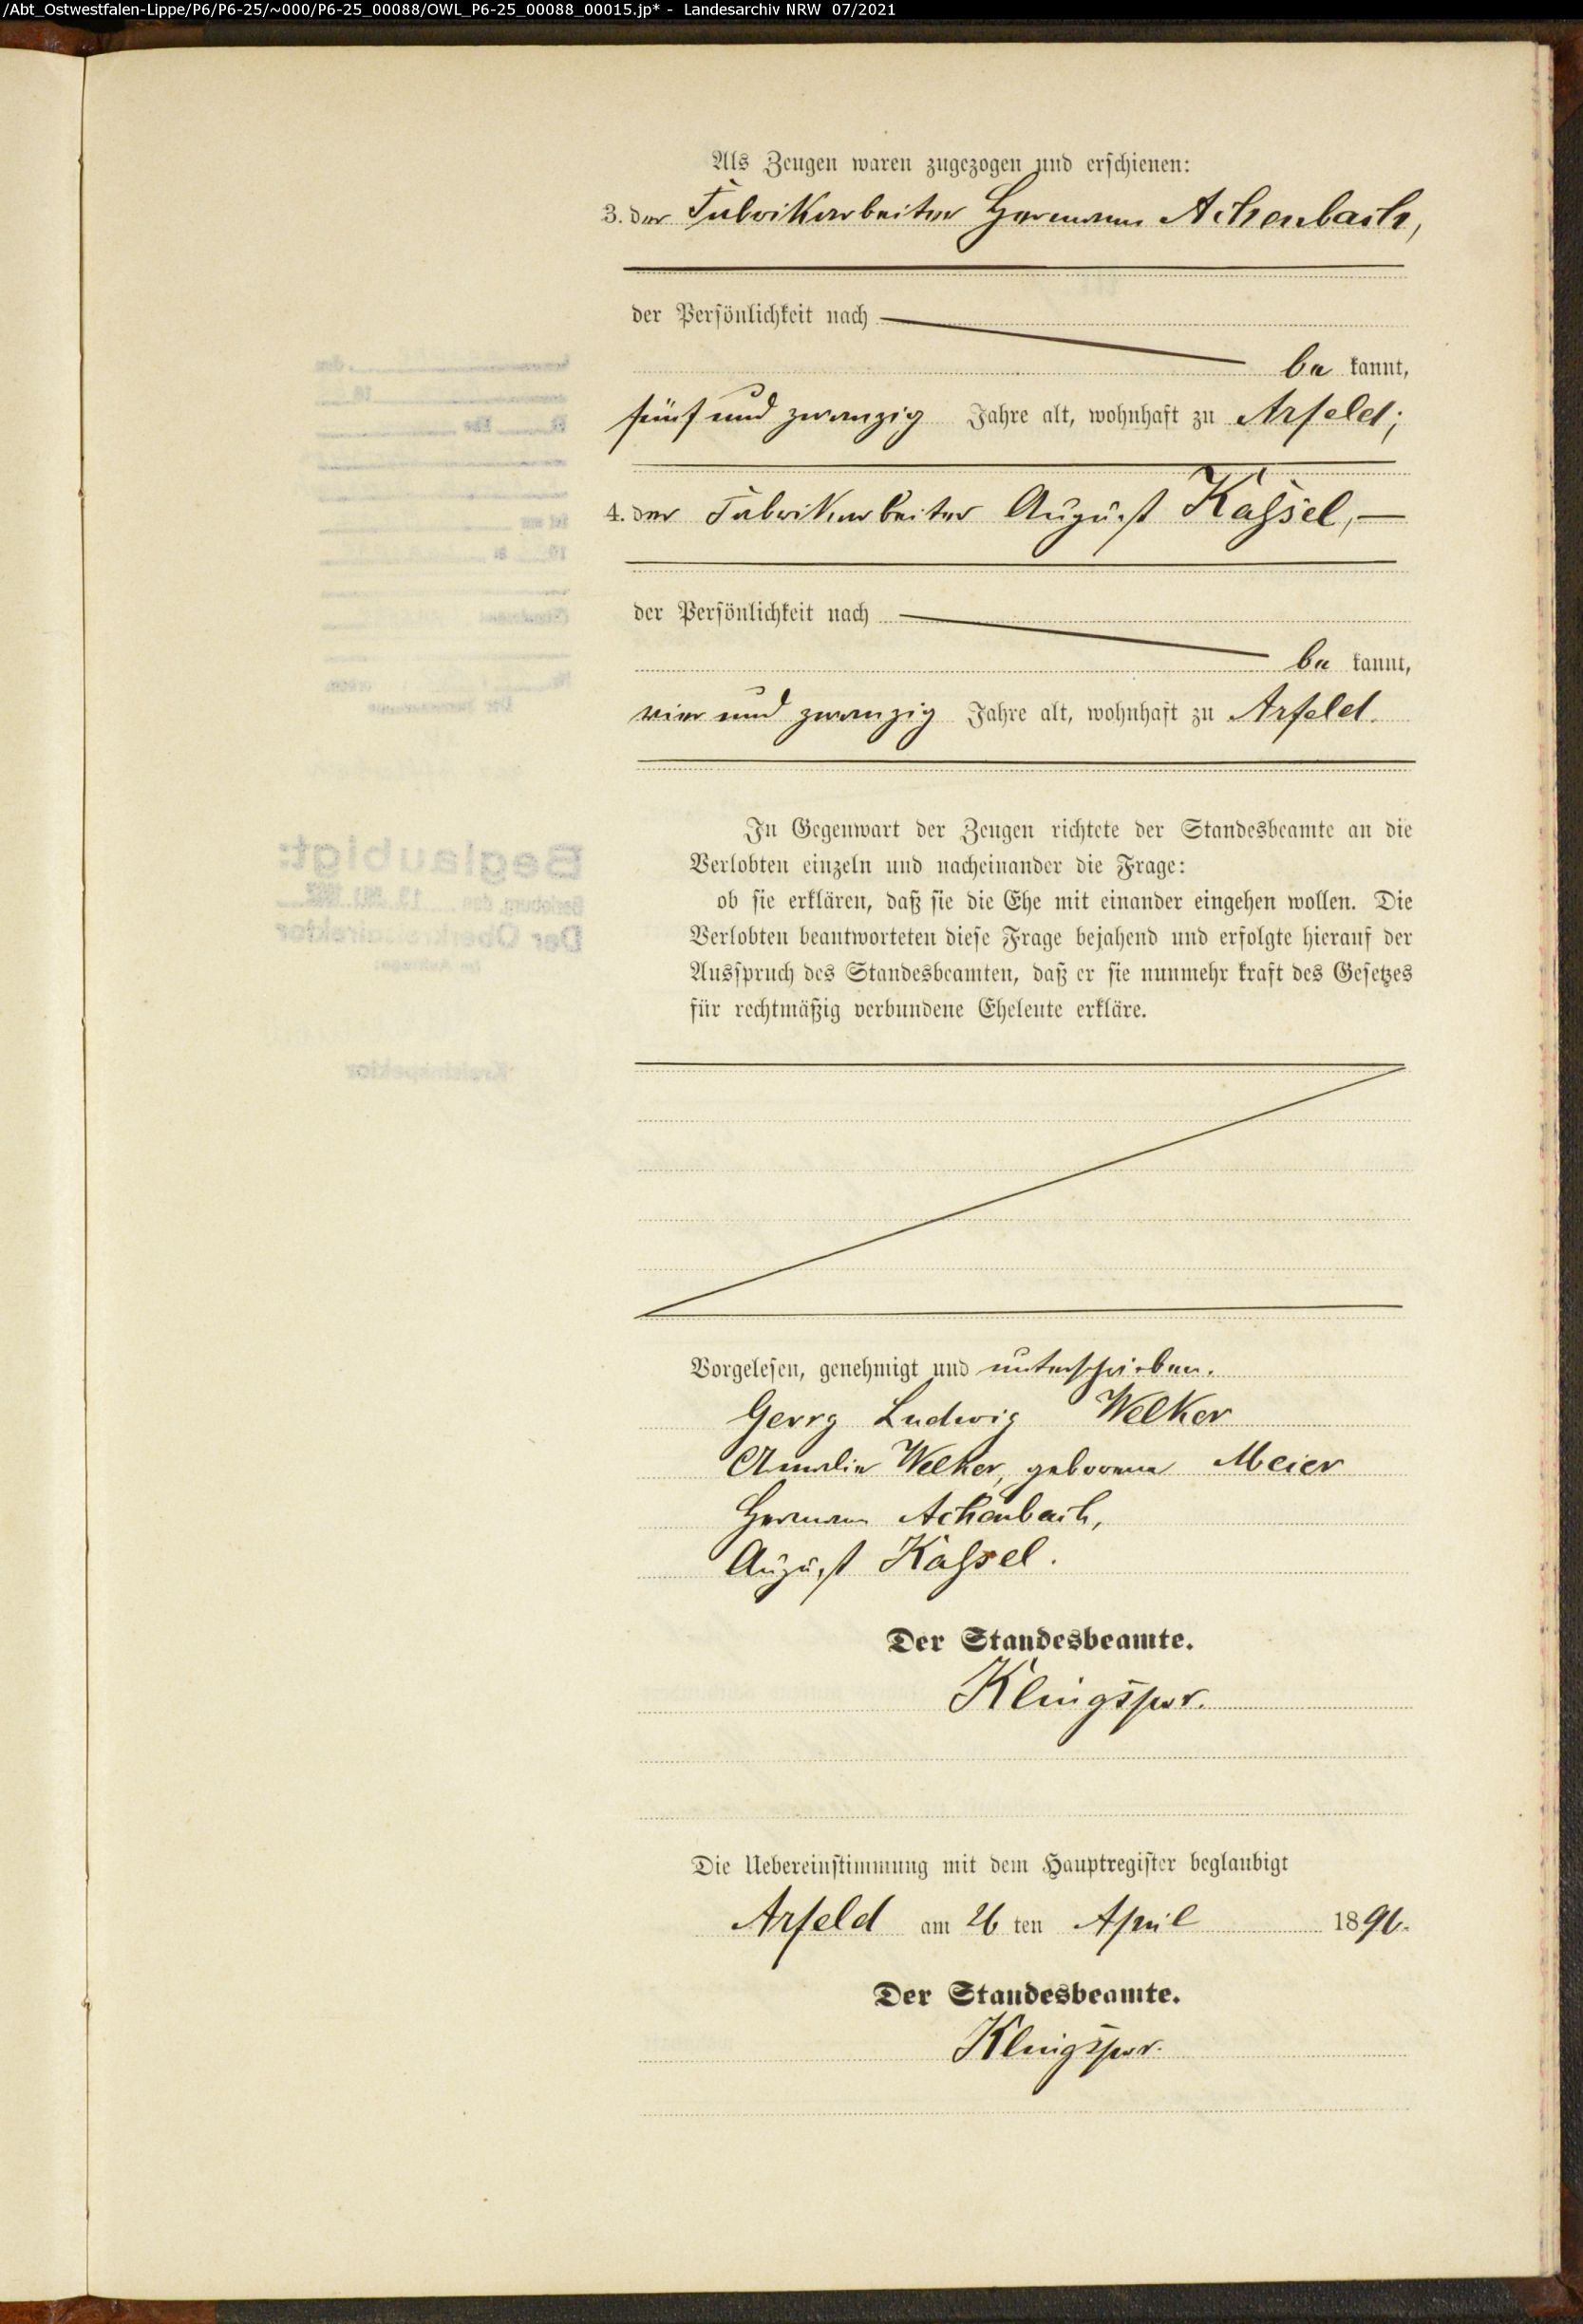 /Abt_Ostwestfalen-Lippe/P6/P6-25/~000/P6-25_00088/OWL_P6-25_00088_00015.jp* - Landesarchiv NRW 07/2021
Als Zeugen waren zugezogen und erschienen:
3. der Fabrikarbeiter Hermann Achenbach,
der Persönlichkeit nach
be kannt,
fünf und zwanzig Jahre alt, wohnhaft zu Arfeld;
4. der Fabrikarbeiter August Kaßsel, —
der Persönlichkeit nach
be kannt,
vier und zwanzig Jahre alt, wohnhaft zu Arfeld.
In Gegenwart der Zeugen richtete der Standesbeamte an die
Verlobten einzeln und nacheinander die Frage:
ob sie erklären, daß sie die Ehe mit einander eingehen wollen. Die
Verlobten beantworteten diese Frage bejahend und erfolgte hierauf der
Ausspruch des Standesbeamten, daß er sie nunmehr kraft des Gesetzes
für rechtmäßig verbundene Eheleute erkläre.
Vorgelesen, genehmigt und unterschrieben.
Georg Ludwig Welker
Amalie Welker, geborene Meier
Hermann Achenbach,
August Kaßsel.
Der Standesbeamte.
Klingspor.
Die Uebereinstimmung mit dem Hauptregister beglaubigt
Arfeld am 26 ten April 1896.
Der Standesbeamte.
Klingspor.
Beglaubigt:
Der Oberkreisdirektor
Kreisinspektor